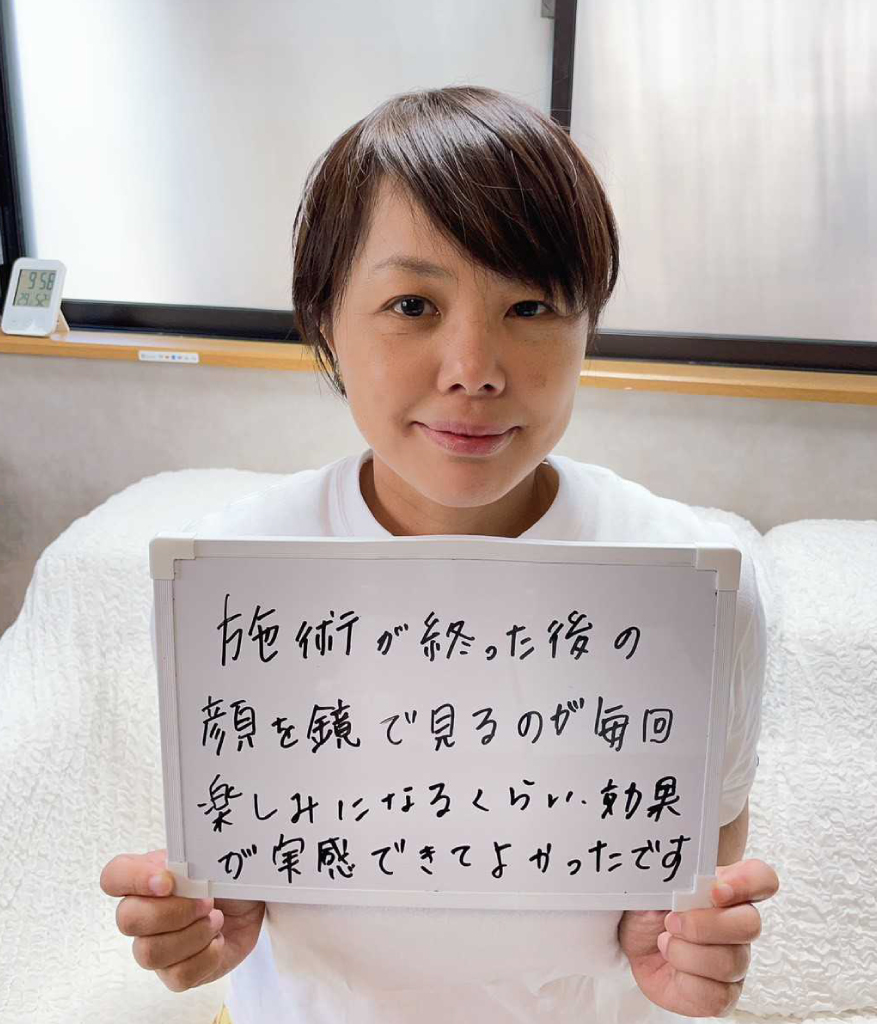 9:58
29 52%
施術が終った後の
顔を鏡で見るのが毎回
楽しみになるくらい、効果
が実感できてよかったです